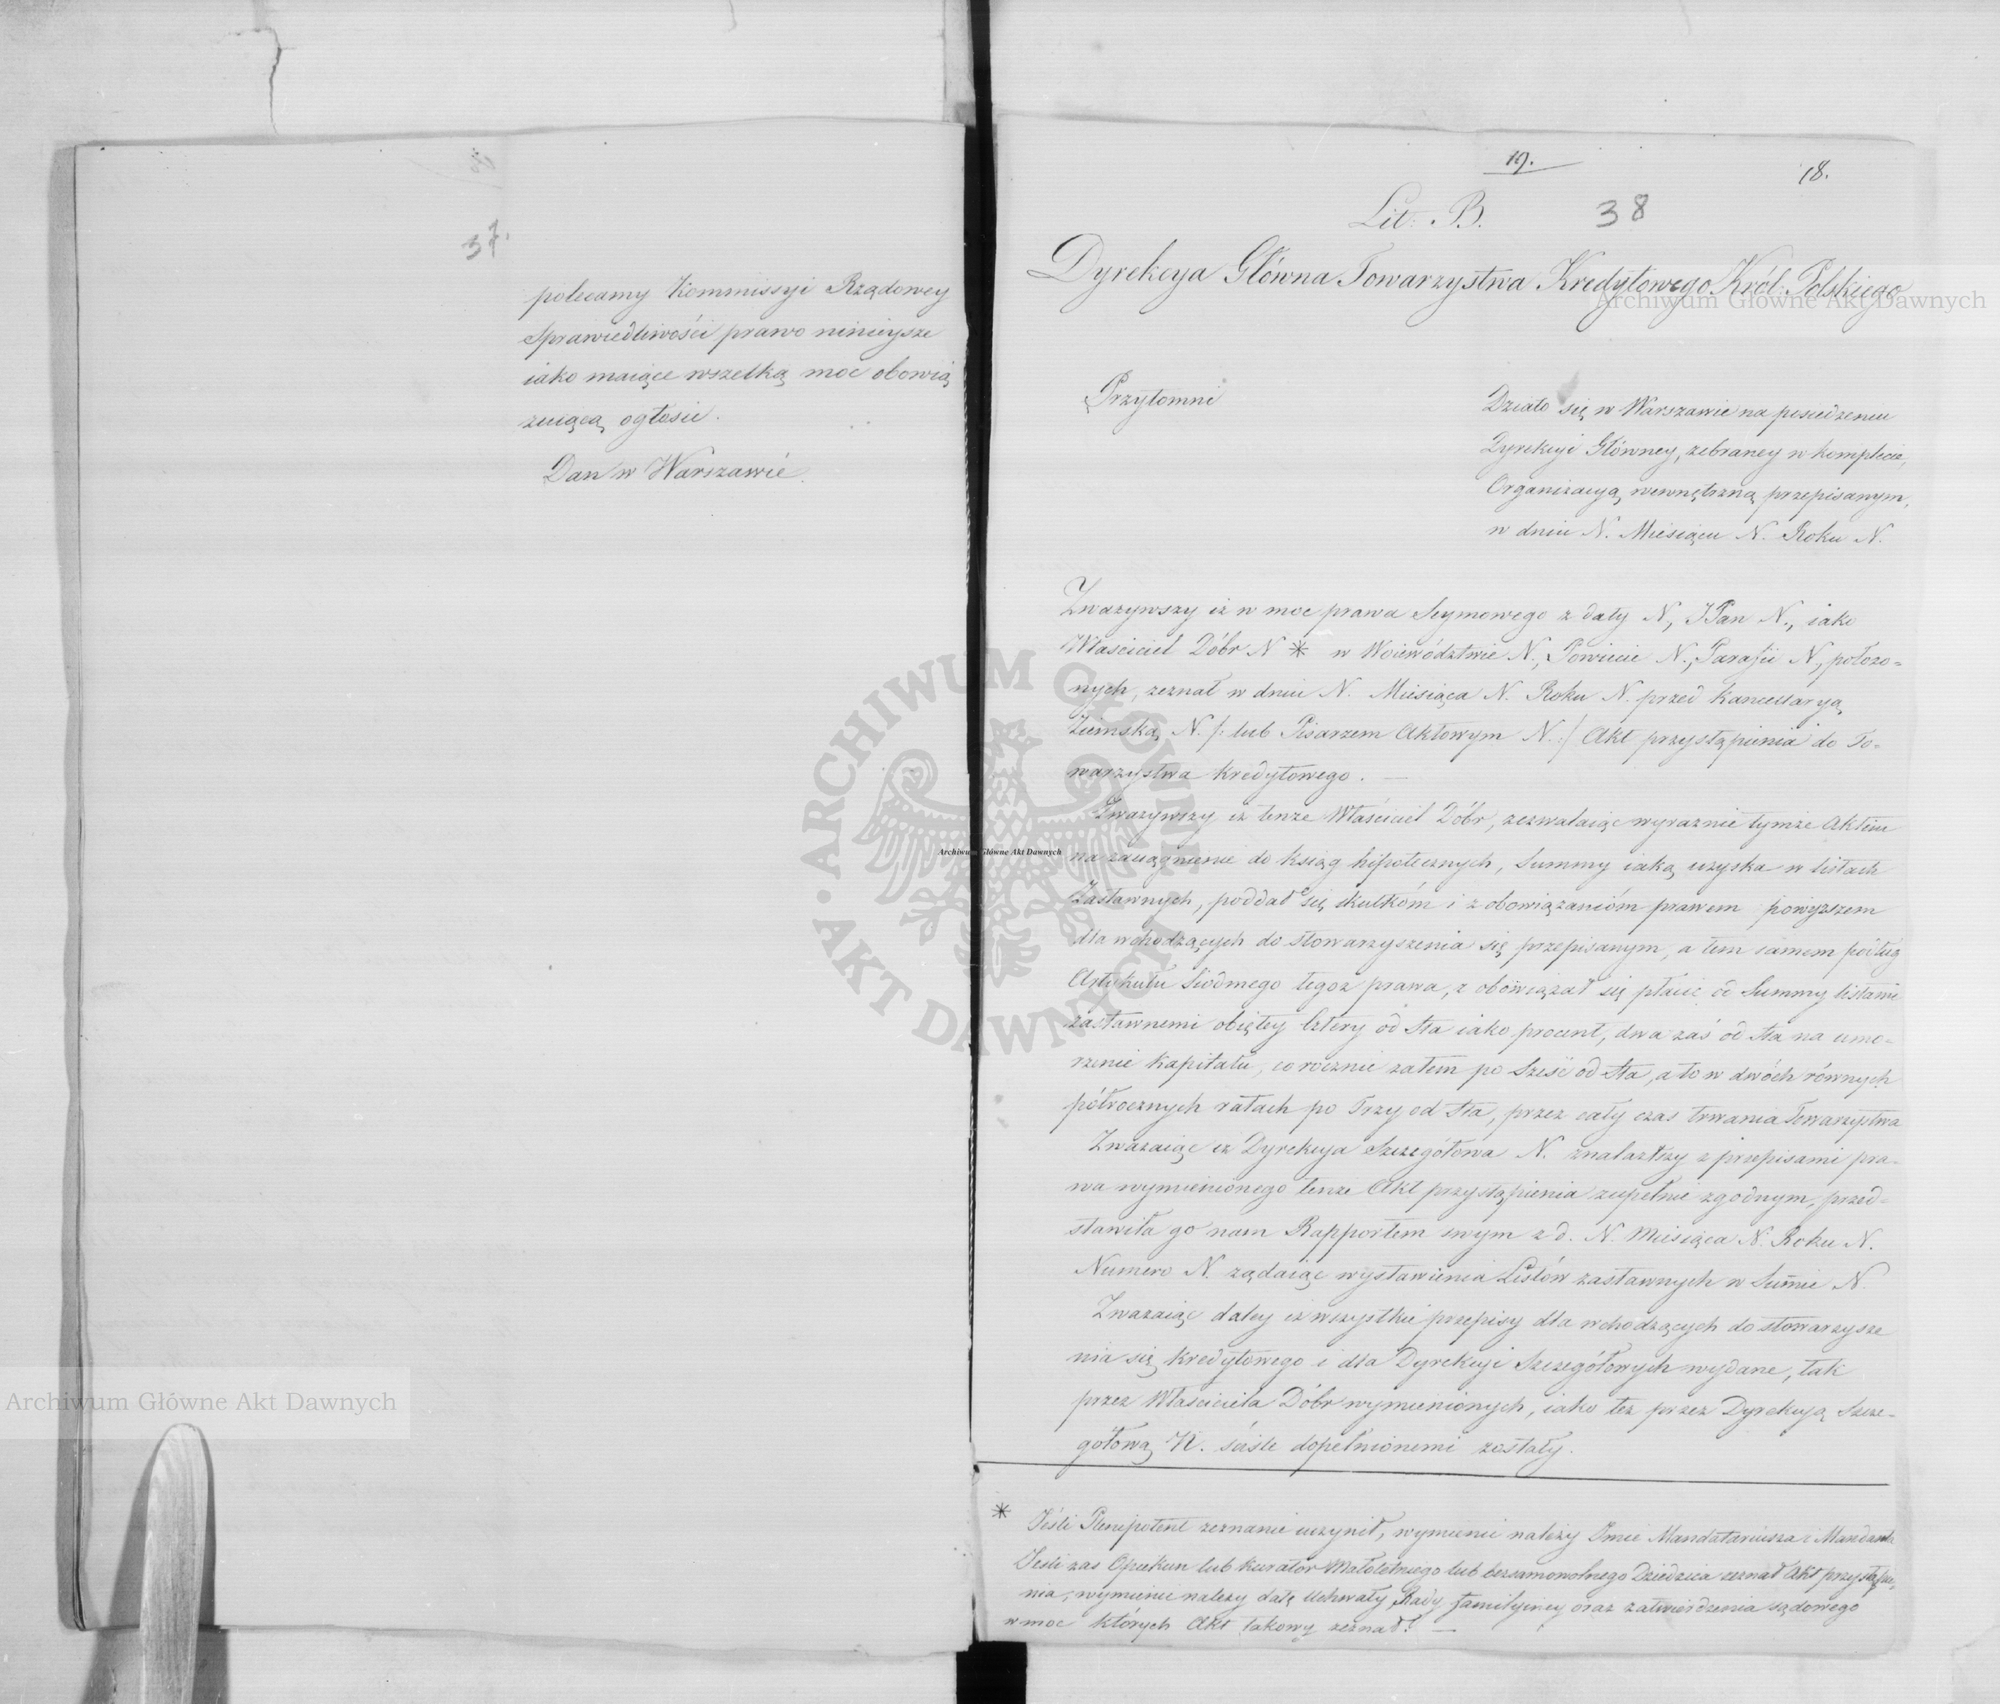 37.
polecamy Kommissyi Rządowey
Sprawiedliwości prawo ninieysze
iako maiące wszelką moc obowią
zuiącą ogłosić.
Dan w Warszawie.
19.
18.
Lit. B.
38
Dyrekcya Główna Towarzystwa Kredytowego Król: Polskiego
Przytomni
Działo się w Warszawie na posiedzeniu
Dyrekcyi Główney, zebraney w komplecie,
Organizacyą wewnętrzną przepisanym,
w dniu N. Miesiącu N. Roku N.
Zważywszy iż w moc prawa Seymowego z daty N, JPan N., iako
Właściciel Dóbr N * w Województwie N., Powiecie N., Parafii N, położo-
nych, zeznał w dniu N. Miesiąca N. Roku N. przed Kancellaryą
Ziemską N. /: lub Pisarzem Aktowym N. :/ Akt przystąpienia do To-
warzystwa Kredytowego. —
Zważywszy iż tenże Właściciel Dóbr, zezwalaiąc wyraźnie tymże Aktem
na zaciągnienie do ksiąg hipotecznych, Summy iaką uzyska w listach
Zastawnych, poddał się skutkóm i zobowiązanióm prawem powyższem
dla wchodzących do stowarzyszenia się przepisanym, a tem samem podług
Artykułu Siódmego tegoż prawa, zobowiązał się płacić od Summy listami
zastawnemi obiętey Cztery od Sta iako procent, dwa zaś od Sta na umo-
rzenie Kapitału, corocznie zatem po Sześć od Sta, a to w dwóch równych
półrocznych ratach po Trzy od Sta, przez cały czas trwania Towarzystwa
Zważaiąc iż Dyrekcya Szczegółowa N. znalazłszy z przepisami pra-
wa wymienionego tenże Akt przystąpienia zupełnie zgodnym, przed-
stawiła go nam Rapportem swym z d. N. Miesiąca N. Roku N.
Numero N. żądaiąc wystawienia Listów zastawnych w Summie N.
Zważaiąc daley iż wszystkie przepisy dla wchodzących do stowarzysze
nia się kredytowego i dla Dyrekcyi Szczegółowych wydane, tak
przez Właściciela Dóbr wymienionych, iako też przez Dyrekcyą Szcze-
gółową N. ściśle dopełnionemi zostały.
* Jeśli Plenipotent zeznanie uczynił, wymienić należy Imie Mandataryusza i Mandanta
Jeśli zaś Opiekun lub Kurator Małoletniego lub bezsamowolnego Dziedzica zeznał Akt przystąpie,
nia, wymienić należy datę Uchwały Rady familyiney oraz zatwierdzenia sądowego
w moc których Akt takowy zeznał. —
Archiwum Główne Akt Dawnych
Archiwum Główne Akt Dawnych
Archiwum Główne Akt Dawnych
ARCHIWUM GŁÓWNE AKT DAWNYCH